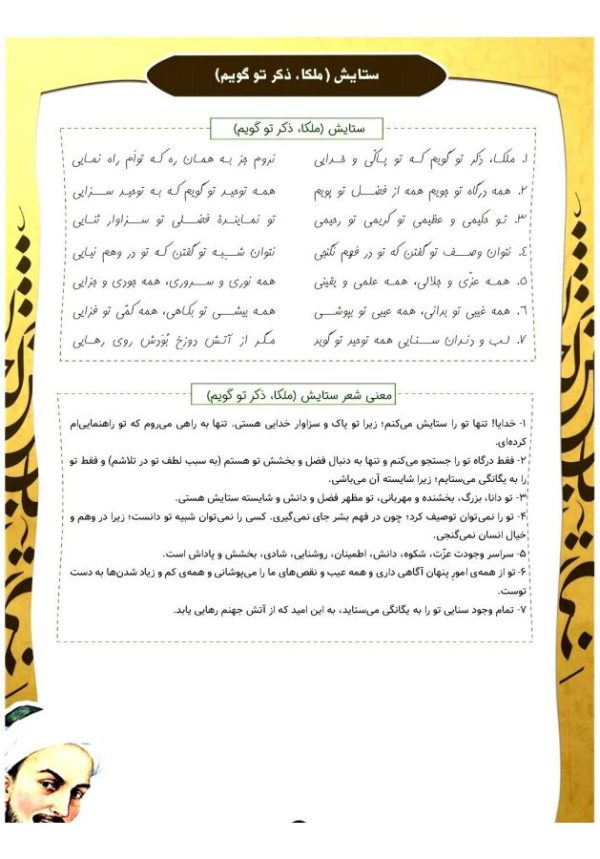 ستایش (ملکا، ذکر تو گویم)
ستایش (ملکا، ذکر تو گویم)
۱. ملکا، ذکر تو گویم که تو پاکّی و خدایی نروم جز به همان ره که توأم راه نمایی
۲. همه درگاه تو جویم همه از فضل تو پویم همه توحید تو گویم که به توحید سزایی
۳. تو حکیمی و عظیمی تو کریمی تو رحیمی تو نمایندهٔ فضلی تو سزاوار ثنایی
۴. نتوان وصف تو گفتن که تو در فهم نگنجی نتوان شبه تو گفتن که تو در وهم نیایی
۵. همه عزّی و جلالی، همه علمی و یقینی همه نوری و سروری، همه جودی و جزایی
۶. همه غیبی تو بدانی، همه عیبی تو بپوشی همه بیشی تو بکاهی، همه کمّی تو فزایی
۷. لب و دندان سنایی همه توحید تو گوید مگر از آتش دوزخ بُوَدش روی رهایی
معنی شعر ستایش (ملکا، ذکر تو گویم)
۱- خدایا! تنها تو را ستایش می‌کنم؛ زیرا تو پاک و سزاوار خدایی هستی. تنها به راهی می‌روم که تو راهنمایی‌ام
کرده‌ای.
۲- فقط درگاه تو را جستجو می‌کنم و تنها به دنبال فضل و بخشش تو هستم (به سبب لطف تو در تلاشم) و فقط تو
را به یگانگی می‌ستایم؛ زیرا شایسته آن می‌باشی.
۳- تو دانا، بزرگ، بخشنده و مهربانی، تو مظهر فضل و دانش و شایسته ستایش هستی.
۴- تو را نمی‌توان توصیف کرد؛ چون در فهم بشر جای نمی‌گیری. کسی را نمی‌توان شبیه تو دانست؛ زیرا در وهم و
خیال انسان نمی‌گنجی.
۵- سراسر وجودت عزّت، شکوه، دانش، اطمینان، روشنایی، شادی، بخشش و پاداش است.
۶- تو از همه‌ی امورِ پنهان آگاهی داری و همه عیب و نقص‌های ما را می‌پوشانی و همه‌ی کم و زیاد شدن‌ها به دست
توست.
۷- تمام وجود سنایی تو را به یگانگی می‌ستاید، به این امید که از آتش جهنم رهایی یابد.